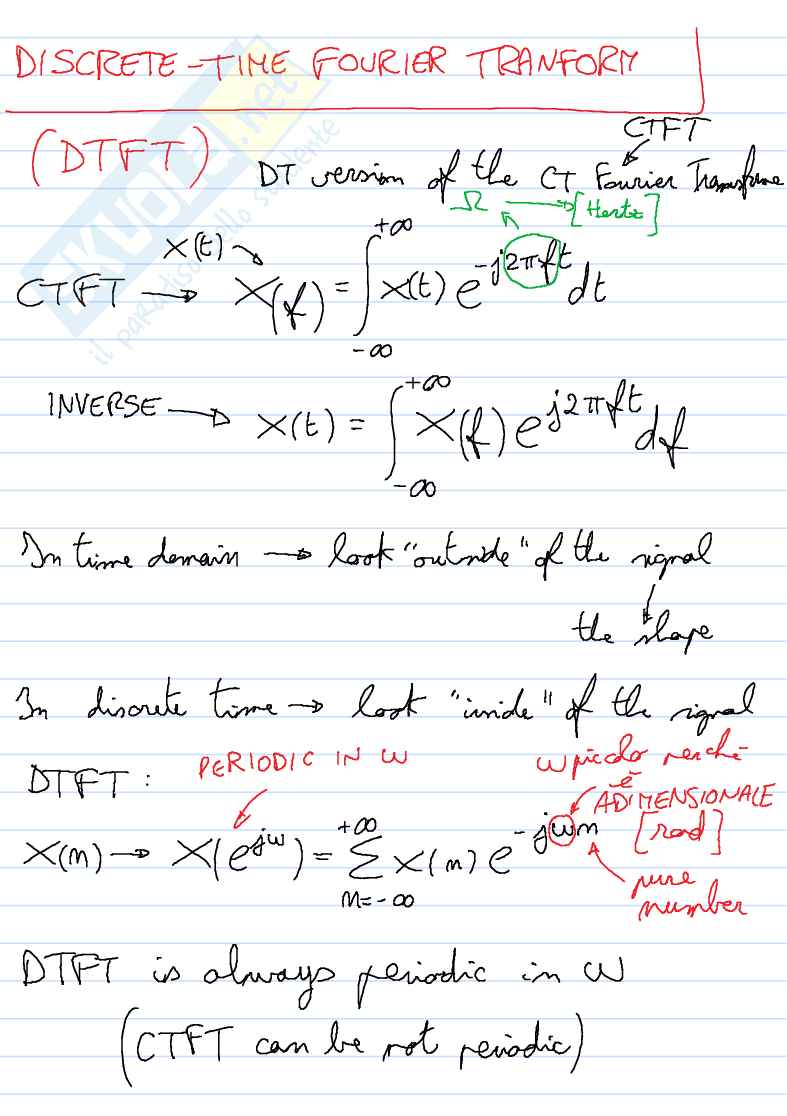 DISCRETE-TIME FOURIER TRANFORM
(DTFT)
CTFT
DT version of the CT Fourier Transform
Ω → [Hertz]
x(t)
CTFT → X(f) = ∫_{-∞}^{+∞} x(t) e^{-j2πft} dt
INVERSE → x(t) = ∫_{-∞}^{+∞} X(f) e^{j2πft} df
In time domain → look "outside" of the signal
the shape
In discrete time → look "inside" of the signal
DTFT:
PERIODIC IN ω
ω piccolo perchè
è
ADIMENSIONALE
x(n) → X(e^{jω}) = ∑_{n=-∞}^{+∞} x(n) e^{-jωn} [rad]
pure
number
DTFT is always periodic in ω
(CTFT can be not periodic)
SKUOLA.net
il paradiso dello studente